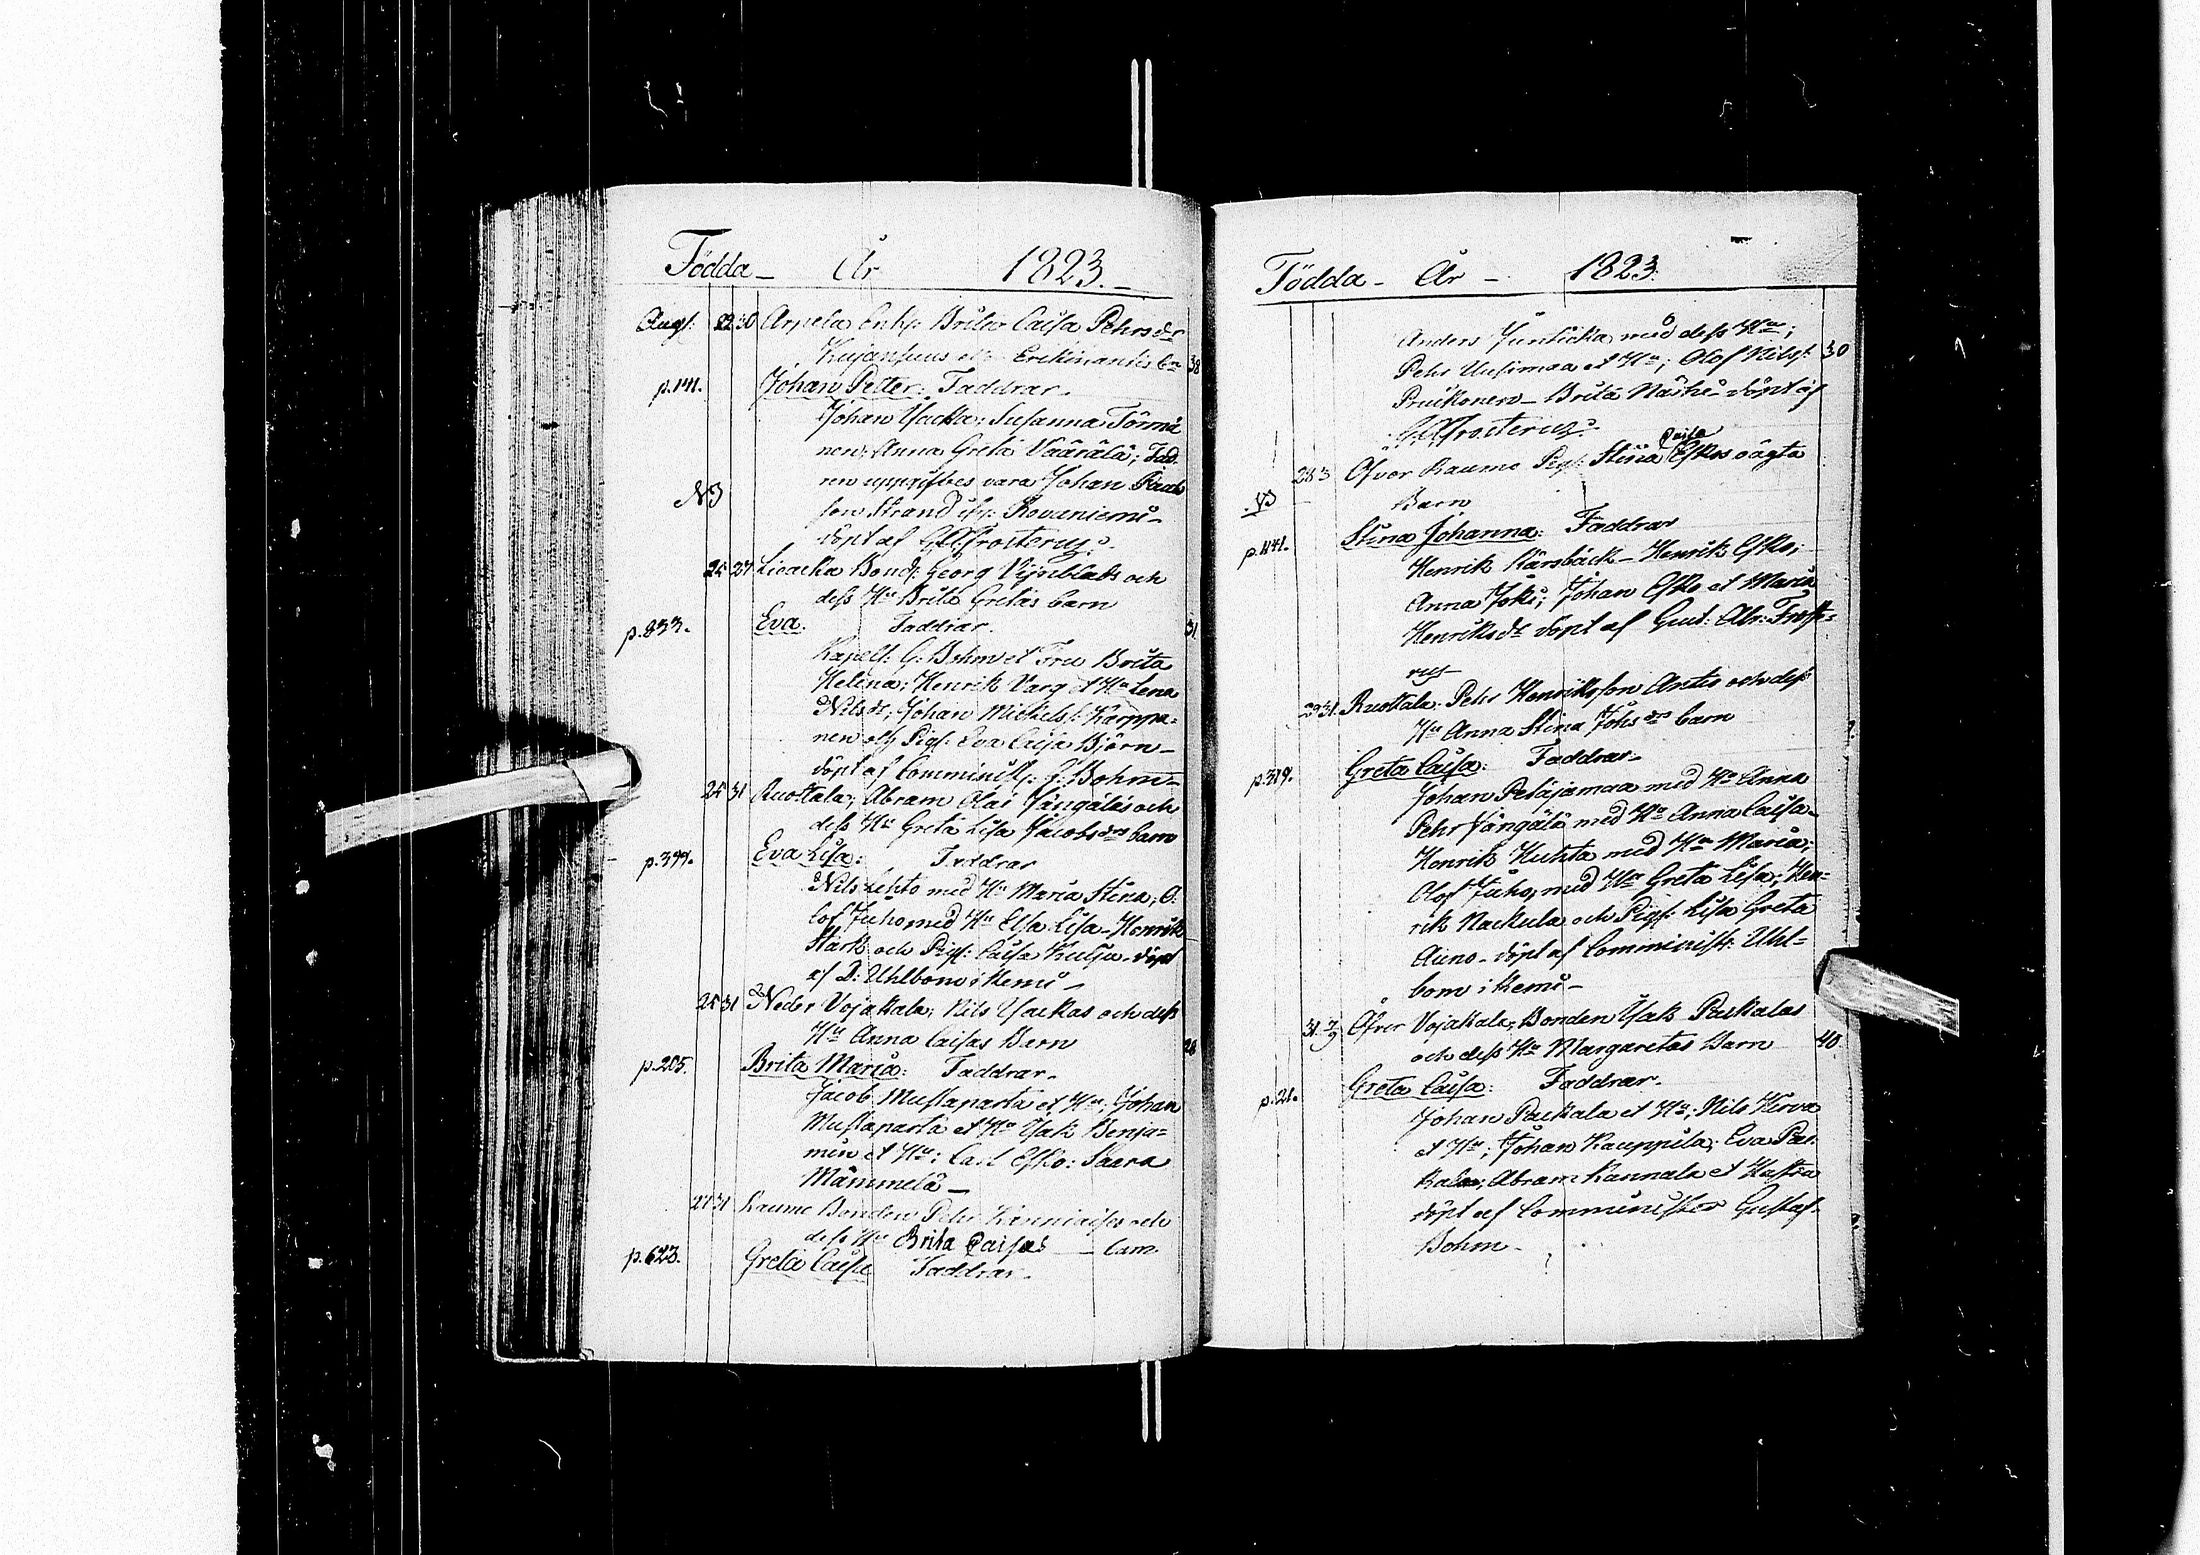 Födda - År 1823. -
Augs: 22 30 Arpela Enk: Brita Caisa Pehrsdr
Kujanpuus et Erikin antis bn 38
p.141. Johan Petter: Faddrar.
Johan Yacka; Susanna Törmä
nen; Anna Greta Väärälä; Fad.
ren uppgifves vara Johan
NB son Strand ifr: Rovaniemi -
döpt af G A Frosterus.
25 27 Liacka Bond: Georg Vijnblads och
dess Hu Brita Gretas barn
p.833. Eva. Faddrar. 31
Kapell: G: Bohm et Fru Brita
Helena; Henrik Varg et Hu Lena
Nilsdr; Johan Michelss: Karppa=
nen och Pig: Eva Caisa Björn -
döpt af Comminist: G: Bohm -
25 31 Ruottala; Abram Olai Vängäläs och
dess Hu Greta Lisa Jacobsdrs barn
p.399. Eva Lisa: Faddrar
Nils Lehto med Hu Maria Stina; O=
lof Juho, med Hu Elsa Lisa - Henrik
Stark och Pig: Caisa Kulju - döpt
af D: Uhlbom i Kemi -
25 31 Neder Vojakala; Nils Yackas och dess
Hu Anna Caisas Barn 28
p.205. Brita Maria: Faddrar -
Jacob Mustaparta et Hu; Johan
Mustaparta et Hu Isak Benja=
min et Hu; Carl Esko: Saara
Mämmelä -
27 31 Laumo Bonden Pehr och
dess Hu Brita Caisas - barn.
p.623. Greta Caisa Faddrar -
Födda - År - 1823.
Anders Juntickas med dess Hu;
Pehr Uusimaa et Hu; Olof Nilss: 30
Pruikonen - Brita Näske - döpt af
G A Frosterus.
28 3 Öfver Raumo Pig: Stina Caisa Eskos oägta
NB Barn
p.1141. Stina Johanna: Faddrar
Henrik Kärsbäck - Henrik Esko;
Anna Joki; Johan Esko et Maria
Henriksdr döpt af Gust: Abr: Froste=
rus -
29 31. Ruottala. Pehr Henriksson Antis och dess
Hu Anna Stina Johsdrs barn
p.319. Greta Caisa: Faddrar -
Johan Peläjämaa med Hu Anna
Pehr Vängälä med Hu Anna Caisa -
Henrik Huhta med Hu Maria;
Olof Juho, med Hu Greta Lisa; Hen=
rik Nackula och Pig: Lisa Greta
Auno - döpt af Comminist: Uhl=
bom i Kemi -
31 7/9 Öfver Vojakala; Bonden Isak Packalas
och dess Hu Margaretas Barn 40
p.21. Greta Caisa: Faddrar.
Johan Packala et Hu; Nils Kerva
et Hu; Johan Kauppila; Eva Pac=
kala; Abram Kannala et Hustru
döpt af Comminister Gustaf
Bohm -